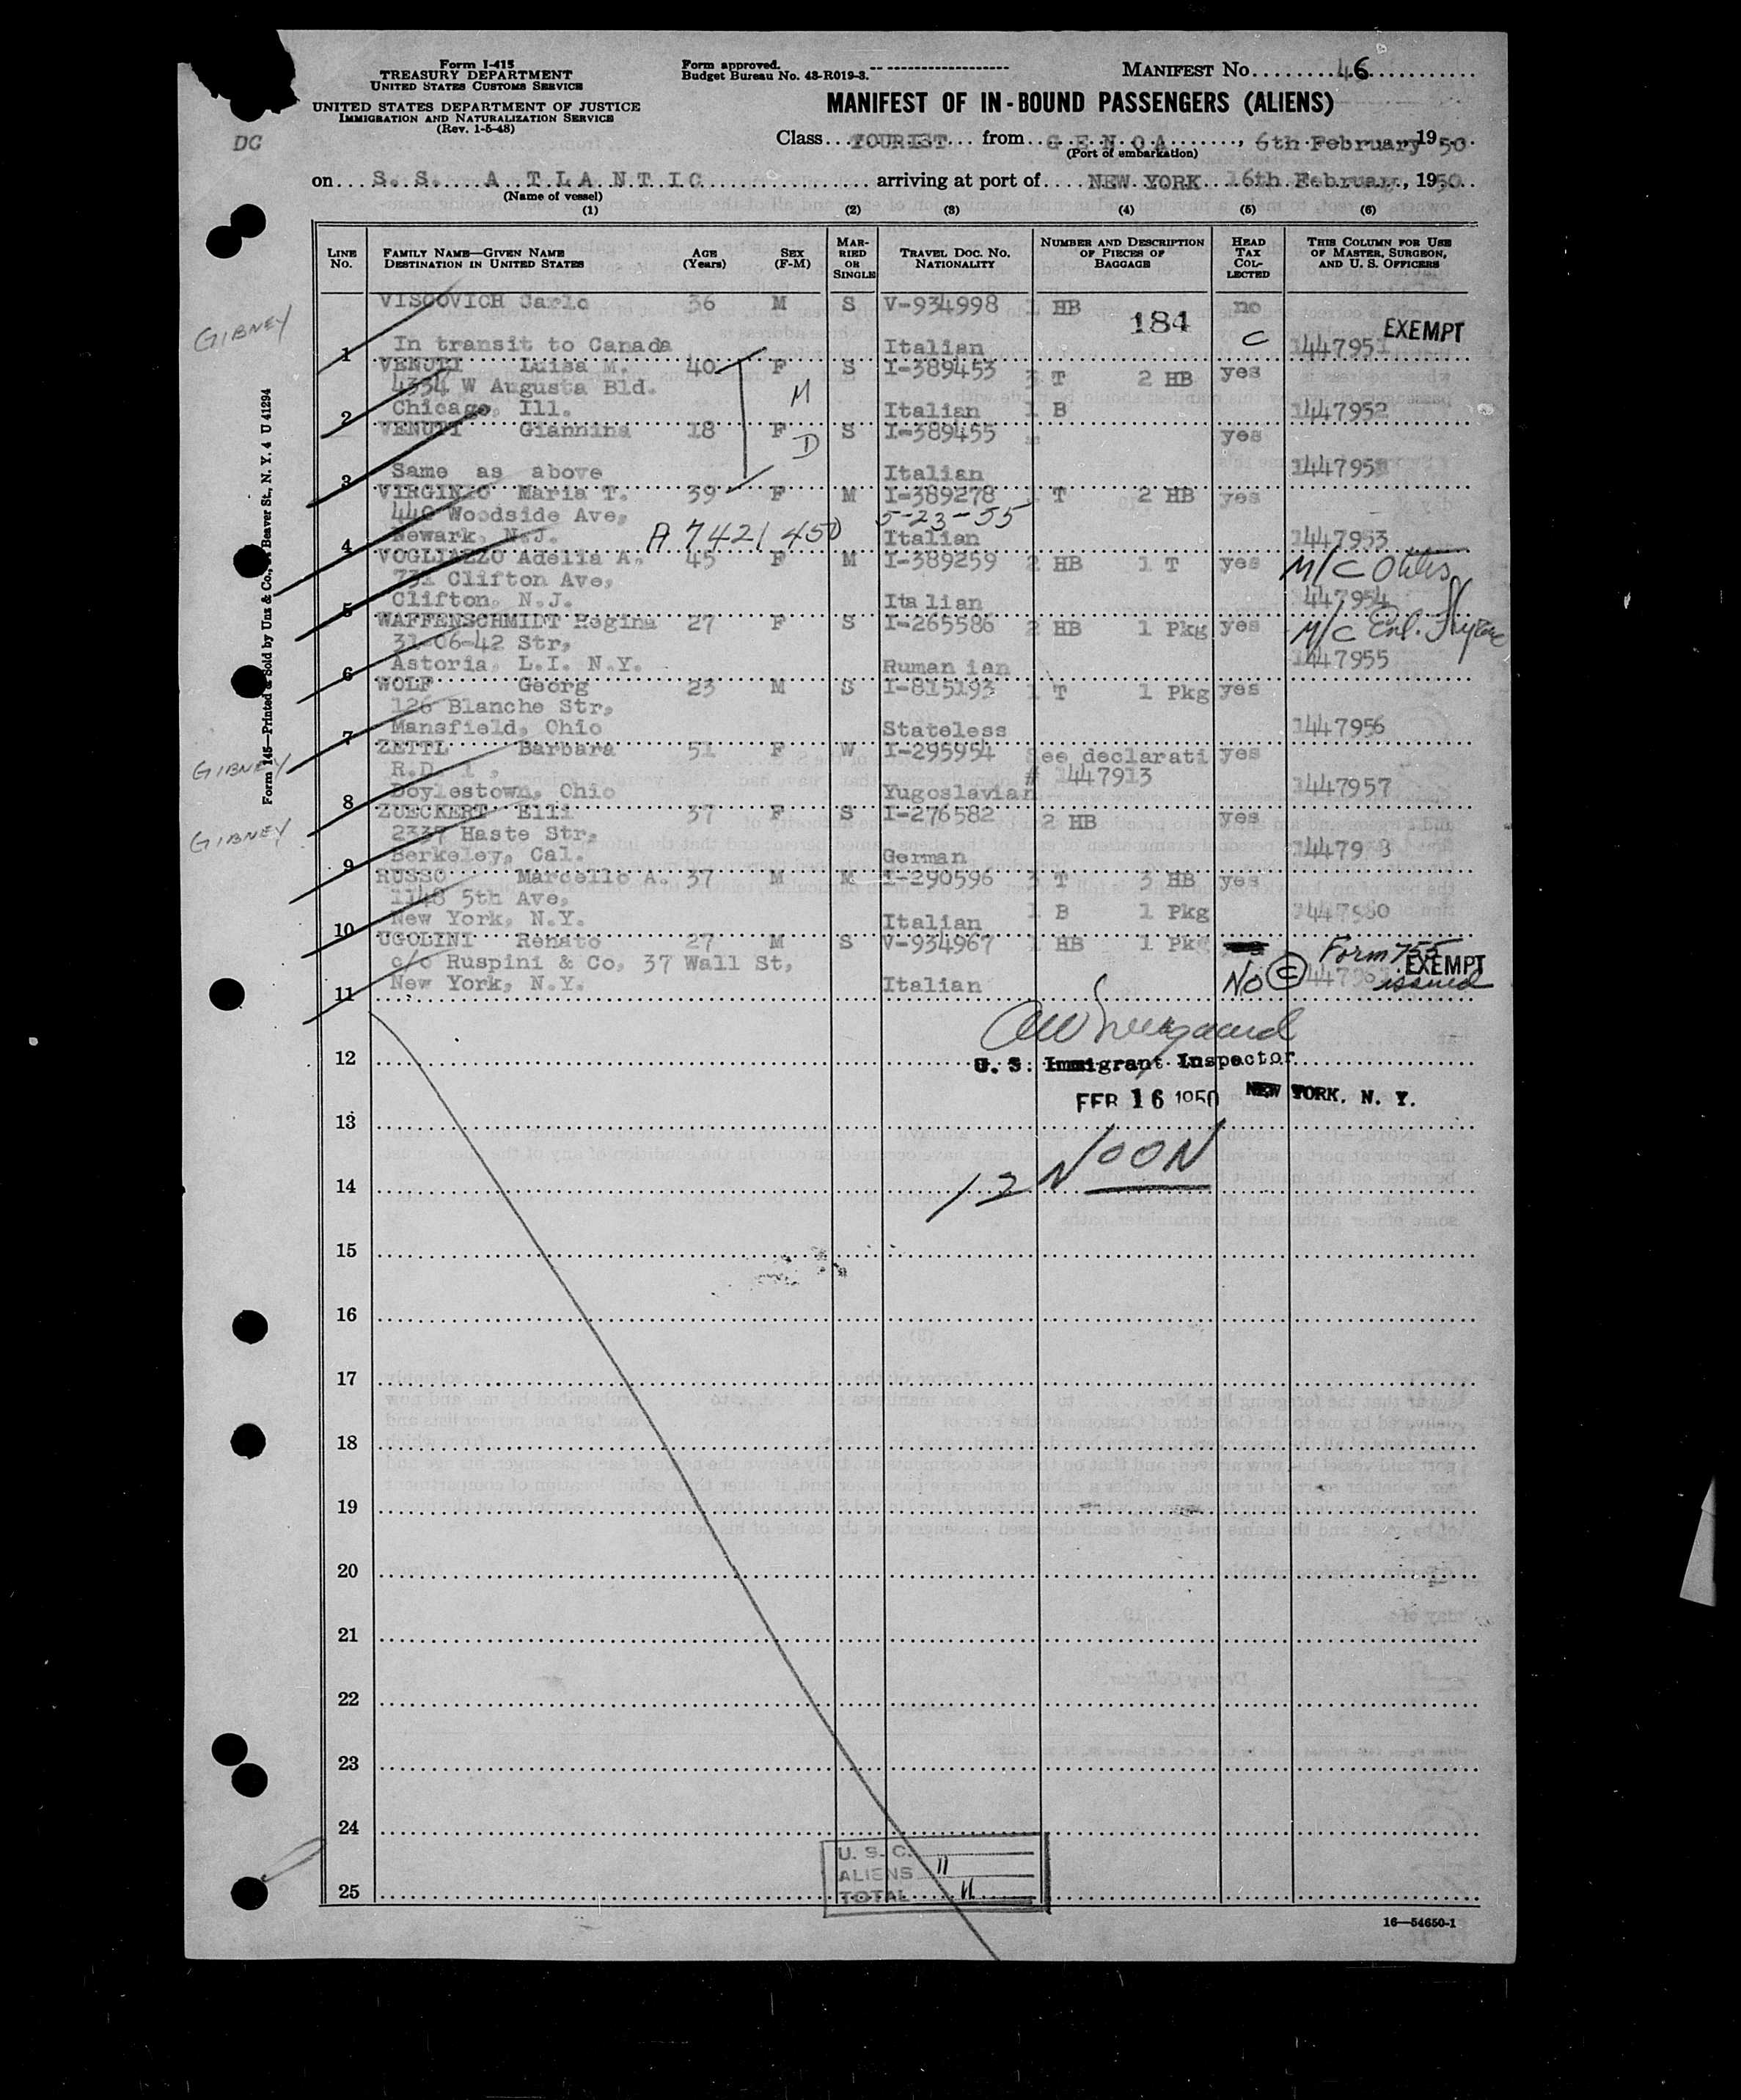 Form I-415
TREASURY DEPARTMENT
UNITED STATES CUSTOMS SERVICE
UNITED STATES DEPARTMENT OF JUSTICE
IMMIGRATION AND NATURALIZATION SERVICE
(Rev. 1-5-48)
Form approved.
Budget Bureau No. 43-R019-3.
MANIFEST No. 46
MANIFEST OF IN-BOUND PASSENGERS (ALIENS)
DC
Class TOURIST from GENOA, 6th February, 1950
(Port of embarkation)
on S.S. ATLANTIC arriving at port of NEW YORK 16th February, 1950
(Name of vessel)
(1) (2) (3) (4) (5) (6)
LINE No. FAMILY NAME—GIVEN NAME DESTINATION IN UNITED STATES AGE (Years) SEX (F-M) MARRIED OR SINGLE TRAVEL DOC. No. NATIONALITY NUMBER AND DESCRIPTION OF PIECES OF BAGGAGE HEAD TAX COLLECTED THIS COLUMN FOR USE OF MASTER, SURGEON, AND U. S. OFFICERS
VISCOVICH Carlo 36 M S V-934998 1 HB no
GIBNEY 184 C EXEMPT
1 In transit to Canada Italian 1447951
VENUTI Luisa M. 40 F S I-389453 3 T 2 HB yes
4334 W Augusta Bld. M
2 Chicago, Ill. Italian 1 B 1447952
VENUTI Giannina 18 F D S I-389455 " yes
3 Same as above Italian 144795
VIRGINIO Maria T. 39 F M I-389278 T 2 HB yes
440 Woodside Ave, 5-23-55
4 Newark, N.J. A 7421450 Italian 1447953
VOGLIAZZO Adelia A. 45 F M I-389259 2 HB 1 T yes M/C
731 Clifton Ave,
5 Clifton, N.J. Italian 447954
WAFFENSCHMIDT Regina 27 F S I-265586 2 HB 1 Pkg yes M/C Enl.
31-06-42 Str,
6 Astoria, L.I. N.Y. Rumanian 1447955
WOLF Georg 23 M S I-815193 1 T 1 Pkg yes
126 Blanche Str,
7 Mansfield, Ohio Stateless 1447956
ZETTL Barbara 51 F W I-295954 See declarati yes
GIBNEY R.D. 1, # 1447913
8 Doylestown, Ohio Yugoslavian 1447957
ZUECKERT Elli 37 F S I-276582 2 HB yes
GIBNEY 2337 Haste Str,
9 Berkeley, Cal. German 14479 8
RUSSO Marcello A. 37 M M I-290596 3 T 3 HB yes
1148 5th Ave,
10 New York, N.Y. Italian 1 B 1 Pkg
UGOLINI Renato 27 M S V-934967 1 HB 1 Pkg Form 755
c/o Ruspini & Co, 37 Wall St, EXEMPT
11 New York, N.Y. Italian No C issued
12
U. S. Immigrant Inspector
FEB 16 1950 NEW YORK, N. Y.
13
12 NOON
14
15
16
17
18
19
20
21
22
23
24
U. S. C.
ALIENS 11
25 TOTAL 11
16—54650-1
Form 145—Printed & Sold by Unz & Co., Beaver St., N. Y. 4 U 41294